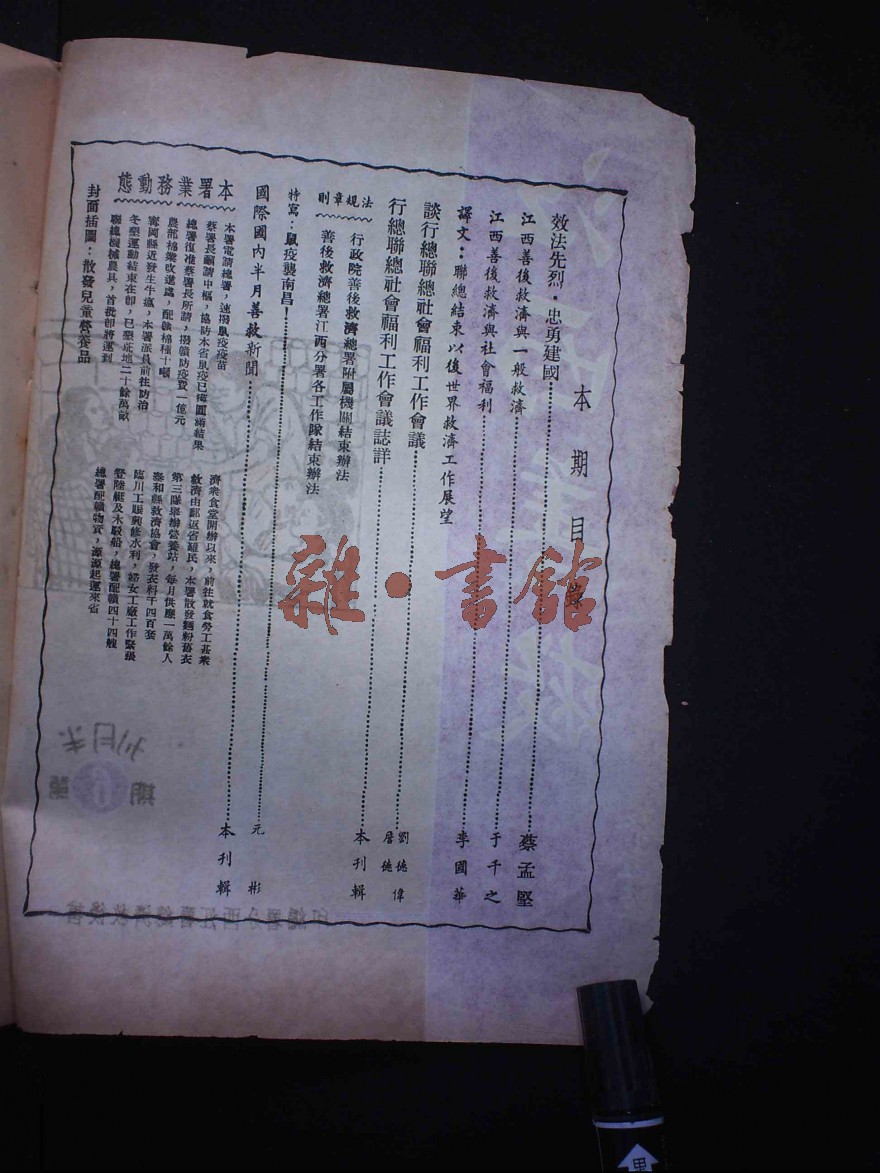 本期目錄
效法先烈・忠勇建國
江西善後救濟與一般救濟……蔡孟堅
江西善後救濟與社會福利……于千之
譯文：聯總結束以後世界救濟工作展望……李國華
談行總聯總社會福利工作會議……劉德偉
行總聯總社會福利工作會議誌詳……詹德
法規章則
行政院善後救濟總署附屬機關結束辦法
善後救濟總署江西分署各工作隊結束辦法
本刊輯
特寫：鼠疫襲南昌！……元彬
國際國內半月善救新聞……本刊輯
本署業務動態
本署電請總署，速撥鼠疫疫苗
蔡署長籲請中樞，協防本省鼠疫已獲圓滿結果
總署復准蔡署長所請，撥贛防疫費一億元
農部棉業改進處，配贛棉種十噸
寗岡縣近發生牛瘟，本署派員前往防治
冬墾運動結束在卽，已墾荒地二十餘萬畝
聯總機械農具，首批卽將運到
濟衆食堂開辦以來，前往就食勞工甚衆
救濟由鄙返省難民，本署散發麵粉舊衣
第三隊舉辦營養站，每月供應一萬餘人
泰和縣救濟協會，發衣料千四百套
臨川工賑興修水利，婦女工廠工作緊張
登陸艇及木駁船，總署配贛四十四艘
總署配贛物資，源源起運來省
封面插圖：散發兒童營養品
雜・書館
半月刊
第6期
善後救濟總署江西分署編印